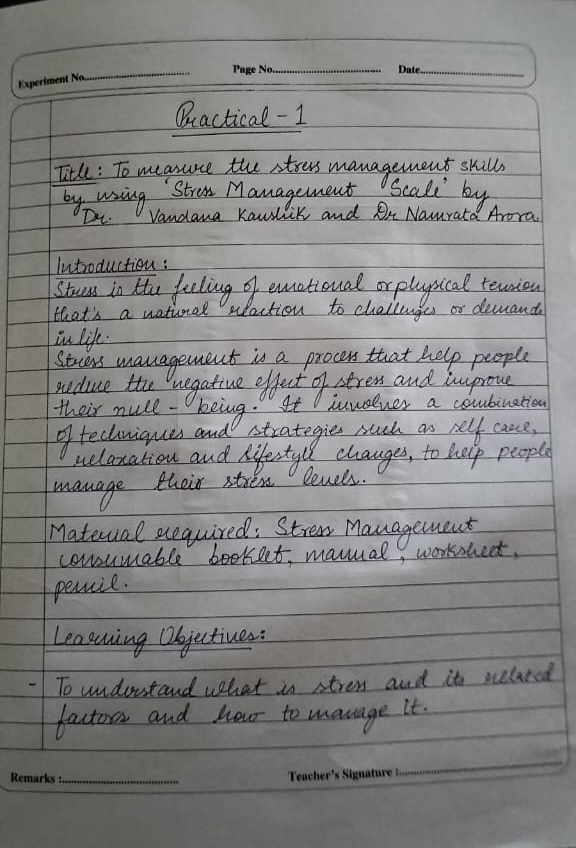 Experiment No.
Page No.
Date
Practical - 1
Title : To measure the stress management skills
by using 'Stress Management Scale' by
Dr. Vandana Kaushik and Dr Namrata Arora
Introduction :
Stress is the feeling of emotional or physical tension
that's a natural reaction to challenges or demands
in life.
Stress management is a process that help people
reduce the negative effect of stress and improve
their null - being. It involves a combination
of techniques and strategies such as self care,
relaxation and lifestyle changes, to help people
manage their stress levels.
Material required: Stress Management
consumable booklet, manual, worksheet,
pencil.
Learning Objectives:
- To understand what is stress and its related
factors and how to manage it.
Remarks :
Teacher's Signature :